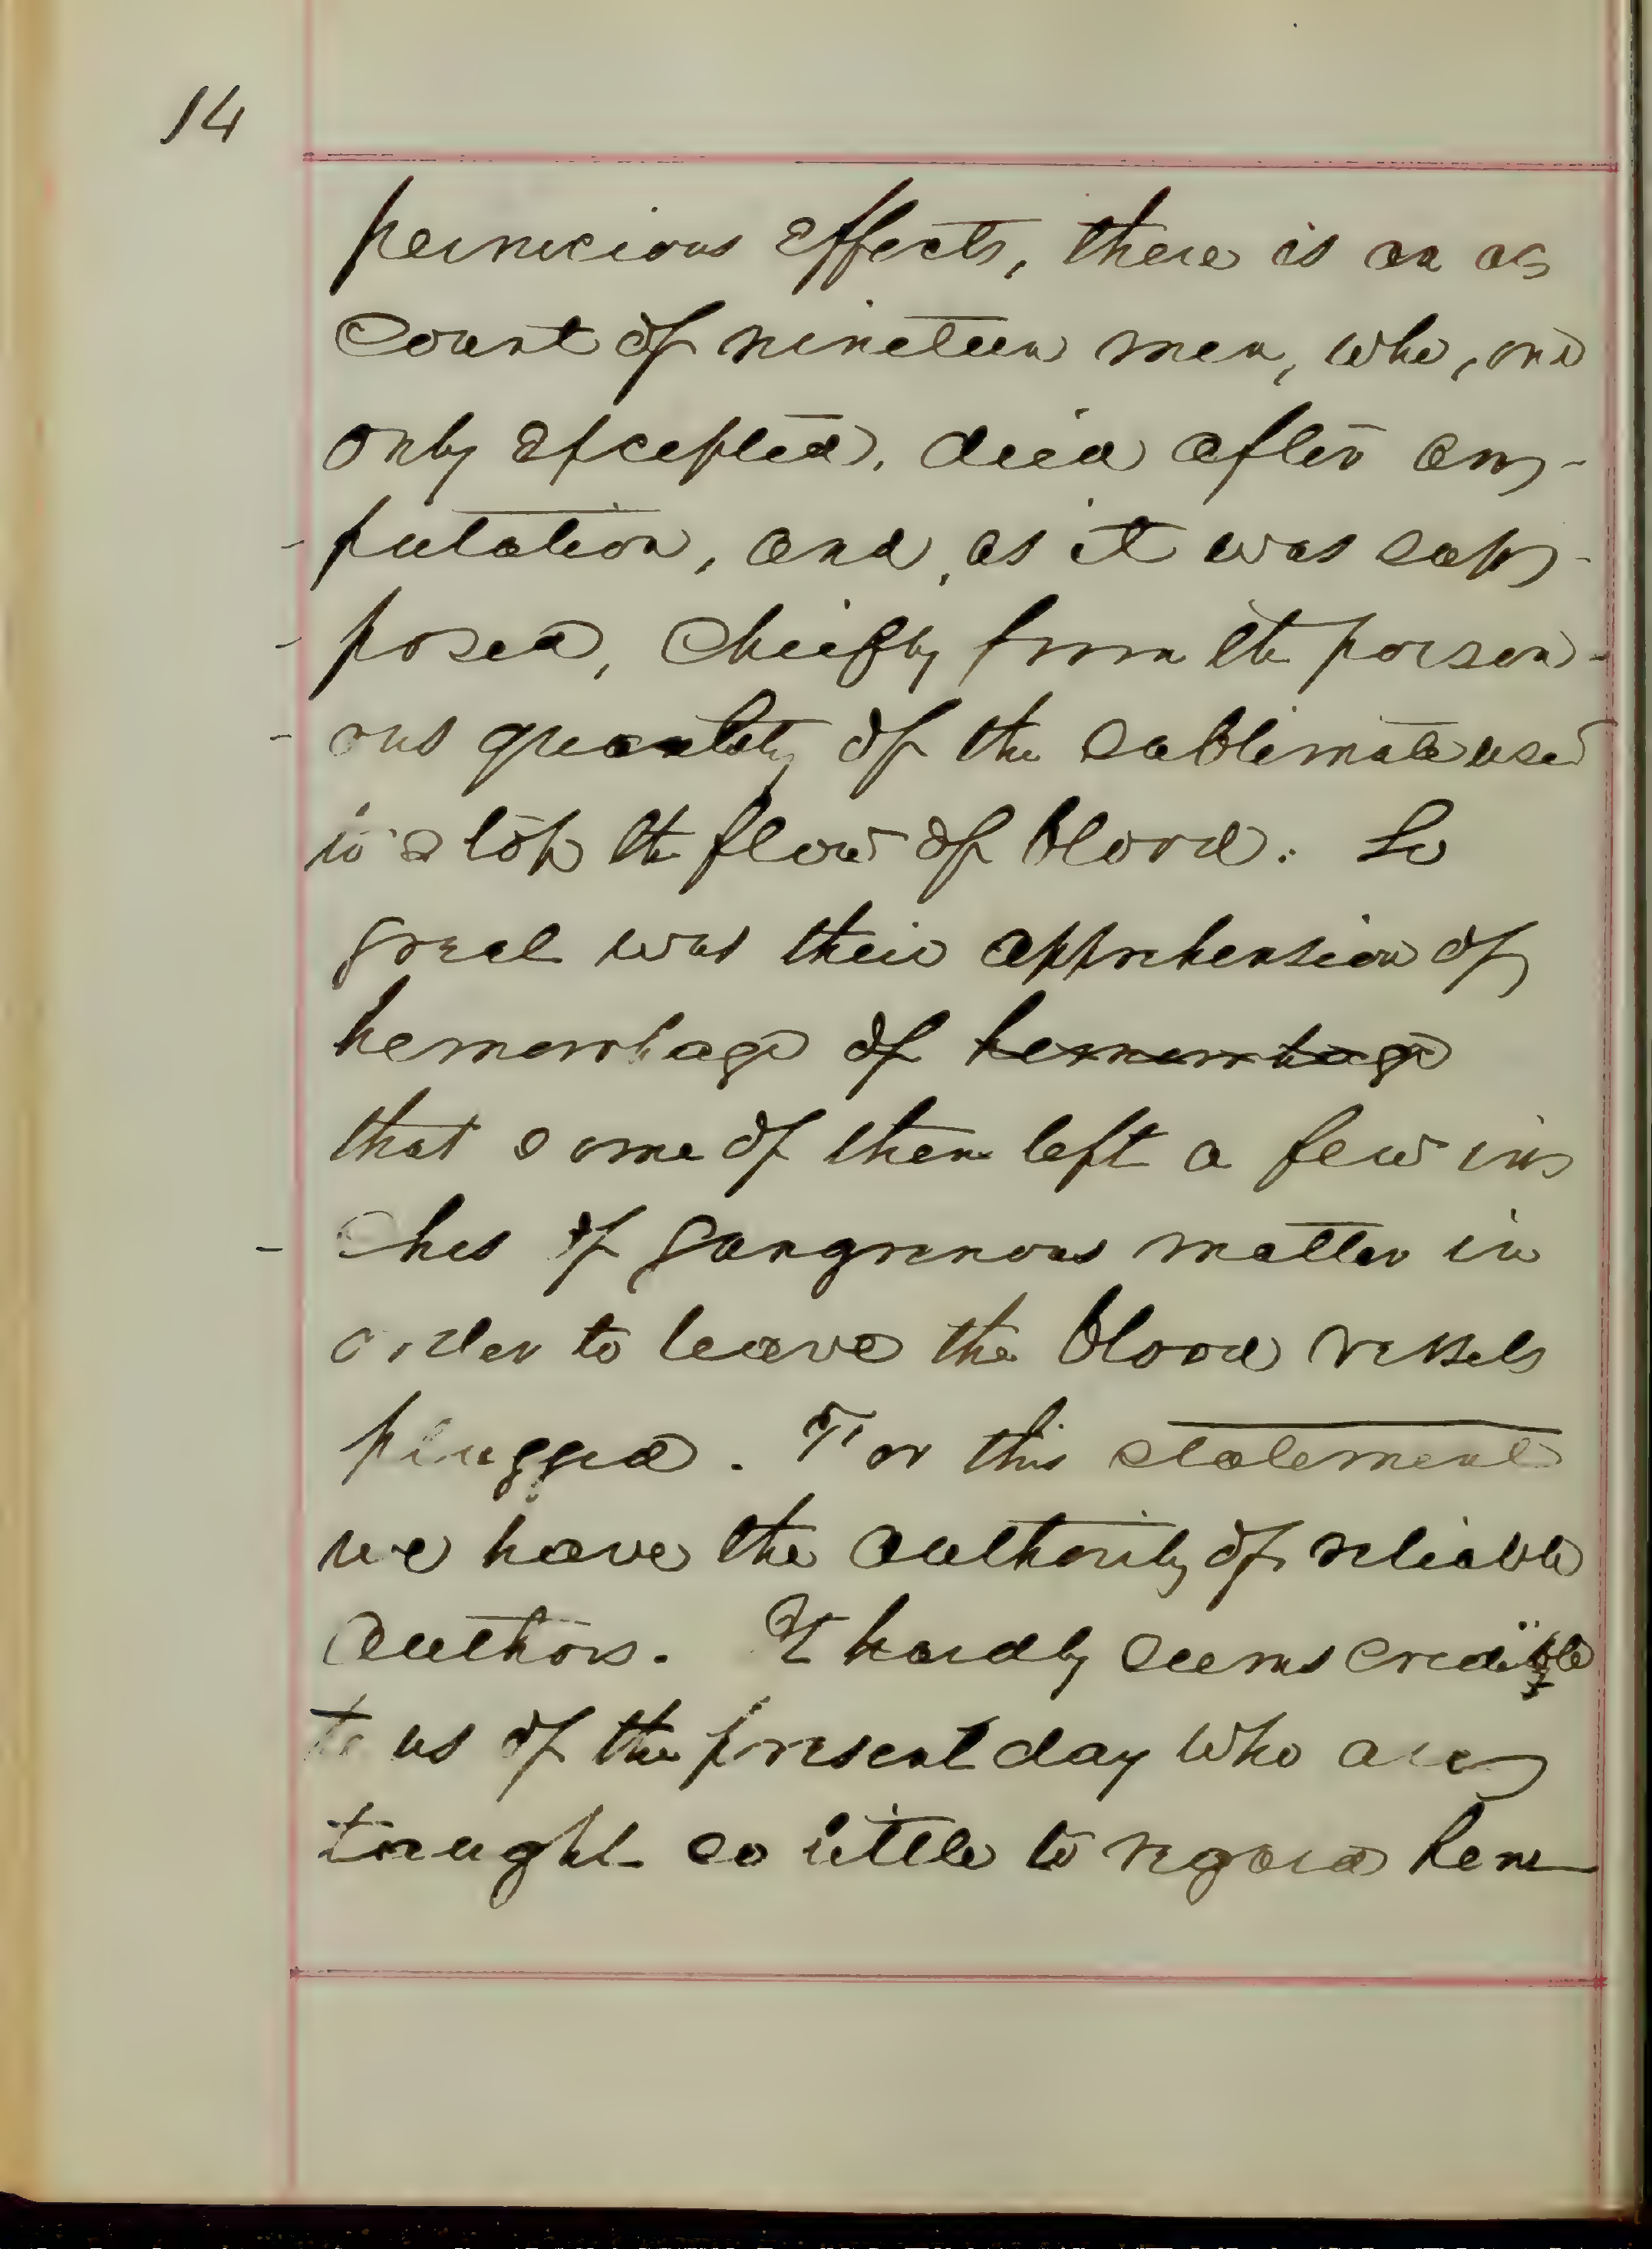 14
pernicious effects, there is an ac
count of nineteen men, who, one
only excepted, died after am-
-putation, and, as it was sup-
-posed, cheifly from the poison-
-ous quantity of the sublimate used
to stop the flow of blood. So
great was their apprehension of
hemorrhage of hemorrhage
that some of them left a few in
-ches of gangrenous matter in
order to leave the blood vessels
plugged. For this statement
we have the authority of reliable
authors. It hardly seems credible
to us of the present day who are
taught so little to regard hem